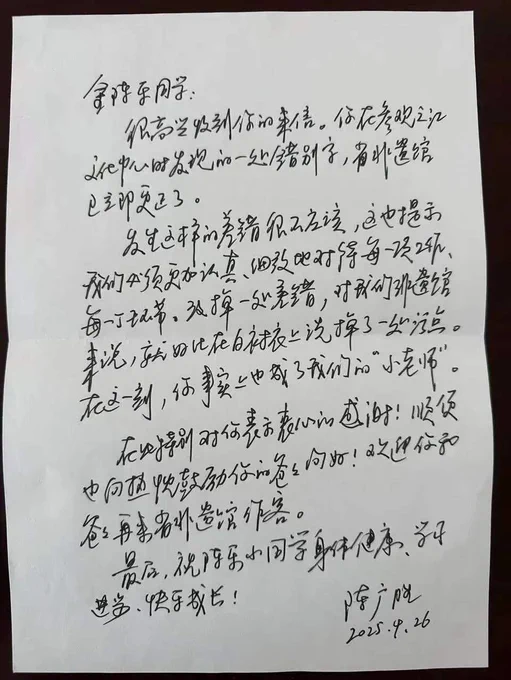 金陈乐同学:
很高兴收到你的来信。你在参观之江
文化中心时发现的一处错别字,省非遗馆
已立即更正了。
发生这样的差错很不应该,这也提示
我们必须更加认真、细致地对待每一项工作、
每一个环节。改掉一处差错,对我们非遗馆
来说,就好比在白衬衣上洗掉了一处污点。
在这一刻,你事实上也成了我们的“小老师”。
在此特别对你表示衷心的感谢!顺便
也向热忱鼓励你的爸爸问好!欢迎你和
爸爸再来省非遗馆作客。
最后,祝陈乐小同学身体健康、学习
进步、快乐成长!
陈广胜
2025.4.26